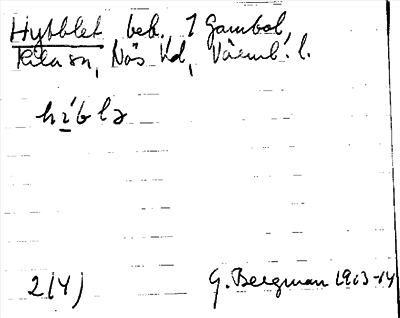 Hybblet beb. 1 Gambol,
Kila sn, Näs hd, Värml. l.
hí̲blə
2(4)
G. Bergman 1913-14